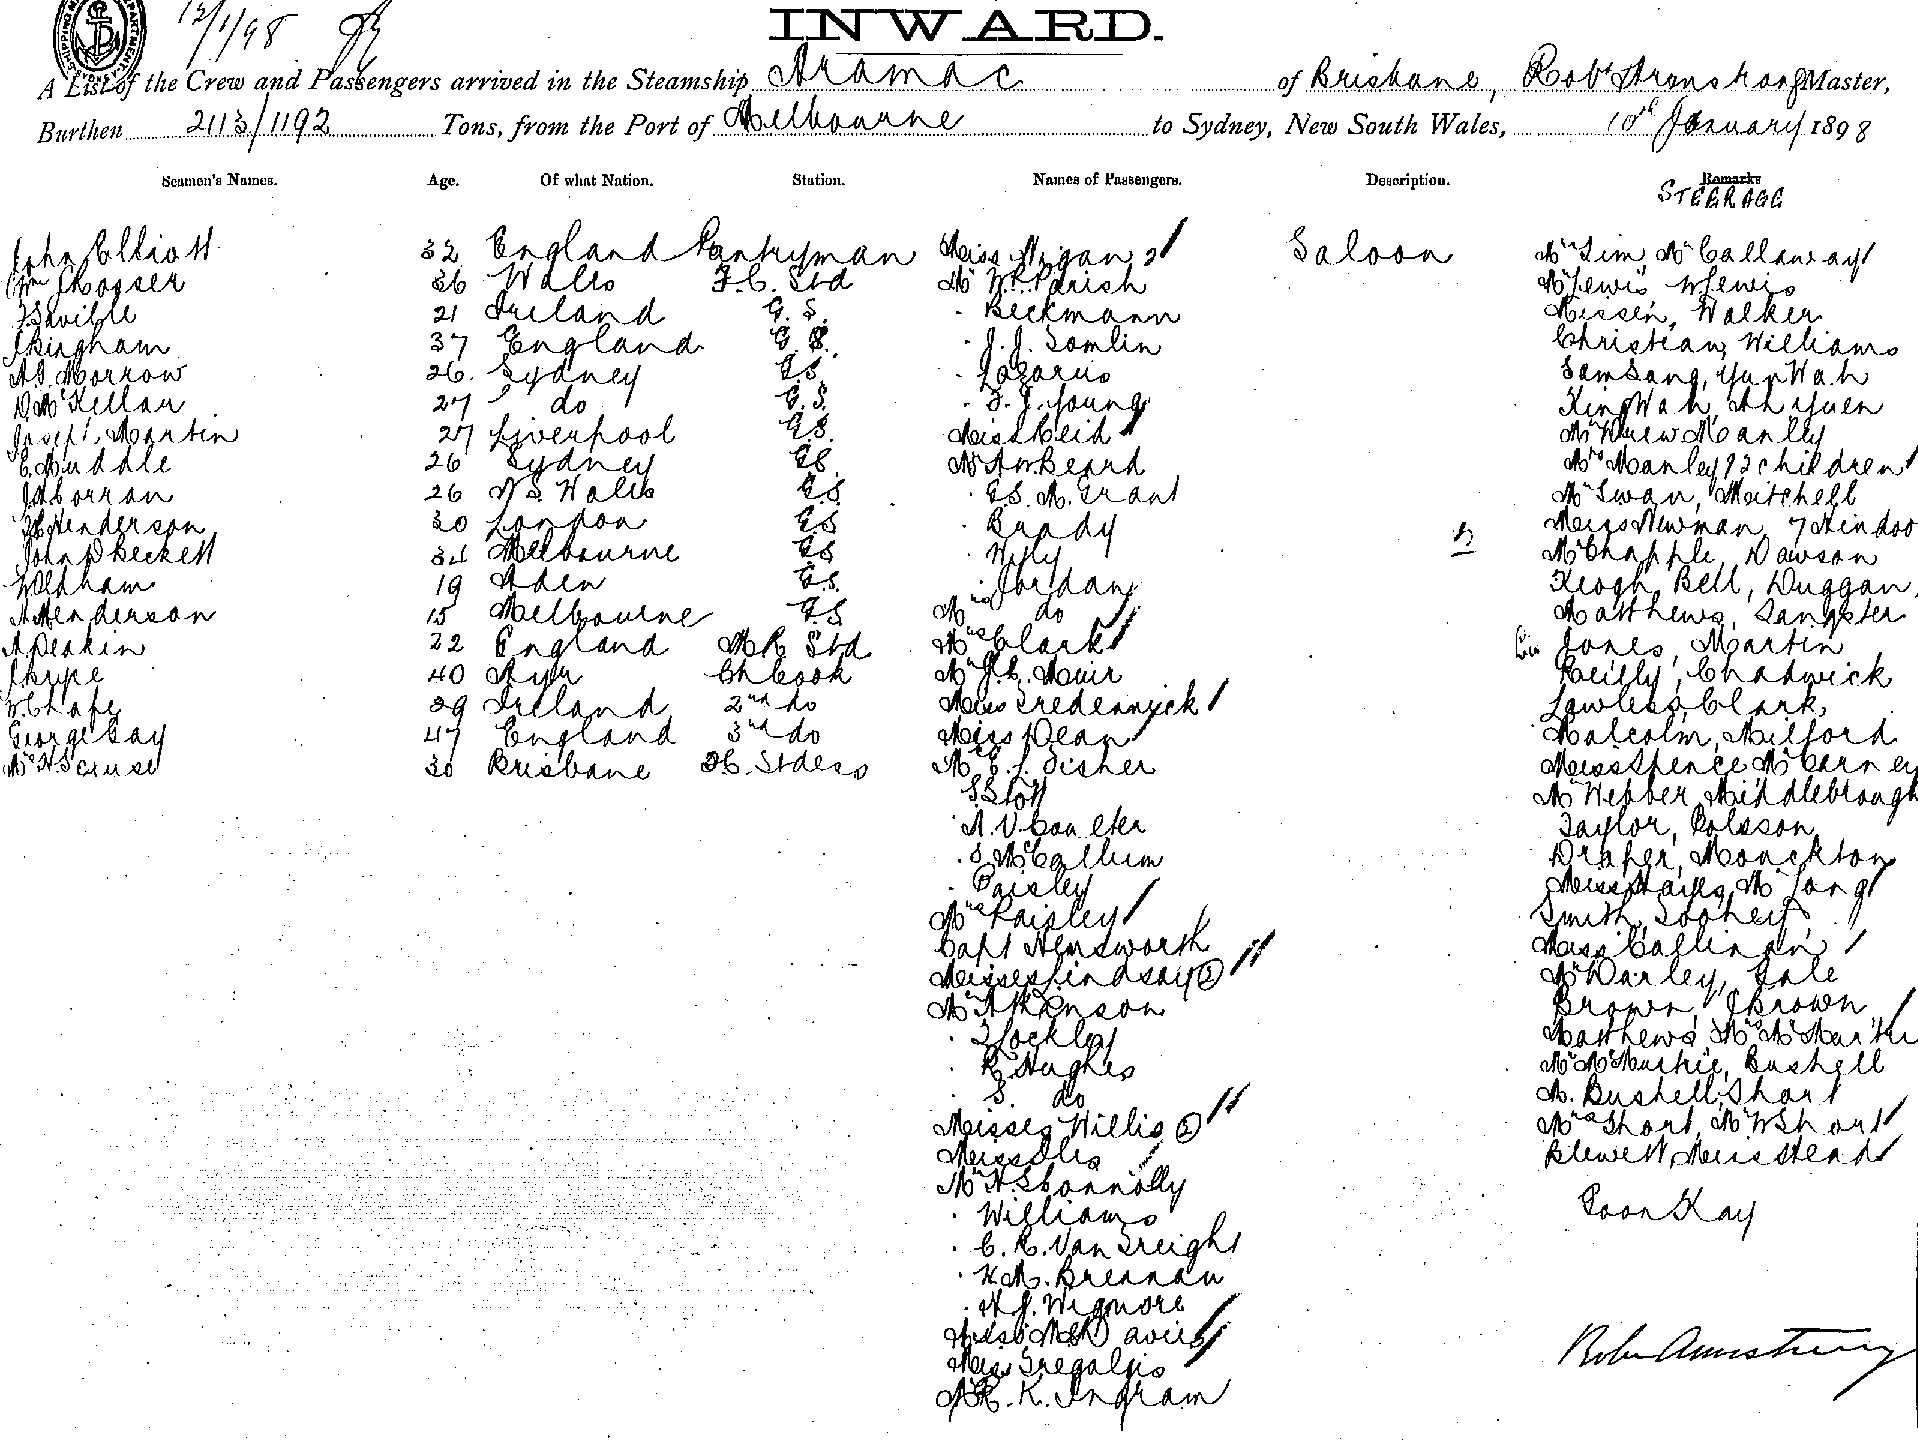 12/1/98
INWARD.
A List of the Crew and Passengers arrived in the Steamship Aramac of Brisbane, Robt Armstrong Master,
Burthen 2113/1192 Tons, from the Port of Melbourne to Sydney, New South Wales, 10th January 1898
Seamen's Names. Age. Of what Nation. Station. Names of Passengers. Description. Remarks
STEERAGE
John Elliott 32 England Pantryman Miss 2 Saloon Mrs Sim, Mr Callaway
Wm Prosser 36 Wales F.C. Std Mr W. Parish Mr Lewis W Lewis
F Saville 21 Ireland G.S. " Beckmann Nissen, Walker
J Bingham 37 England G.S. " J. J. Tomlin Christian, Williams
A.D. Morrow 26. Sydney G.S. " Lazarus Sam Sang, Yun Wah
D McKellar 27 do G.S. " F. J. Young King Wah, Ah Yuen
Joseph Martin 27 Liverpool G.S. Miss Reid Mr Manley
C. Muddle 26 Sydney G.S. Mr Beard Mrs Manley & 2 children
J A Corran 26 N S. Wales G.S. " G.S. M. Grant Mr Swan, Mitchell
Henderson 30 London G.S. " Brady Miss Newman, 7 Hindoo
John D Beckett 34 Melbourne G.S. " Wily Mr Chapple, Dawson
Oldham 19 Aden G.S. " Jordan Keogh, Bell, Duggan,
A Henderson 15 Melbourne G.S. Mrs do Matthews, Sangster
A Deakin 22 England M R Std Mrs Clark Jones, Martin
J Krype 40 Ayr Ch Cook Mr J. G. Muir Reilly, Chadwick
W. Chape 39 Ireland 2nd do Miss Tredennick Lawless, Clark,
George Gay 47 England 3rd do Miss Dean Malcolm, Milford
Mrs H Scruse 30 Brisbane F.C. Stdess Mr E. J. Fisher Miss Spence McCarney
S Stott Mr Webber, Middlebrough
" A. V. Coulter Taylor, Polsson
" S McCallum Draper, Monckton
" Paisley Miss Hayes, Mr Long
Mrs Paisley Smith,
Capt Hemsworth Miss Callinan
Misses Lindsay (2) Mr Darley, Gale
Mr Atkinson Brown, J Brown
" F Lockley Matthews,
" R. Hughes Bushell
" S. do M. Bushell, Short
Misses Willis (2) Mrs Short, Mr W Short
Miss Blewett, Mrs Stead
Mr H. S Connolly
" Williams Poon Kay
" C. R. Van Greight
" H M. Brennan
" H J. Wigmore
Miss Davies Robt Armstrong
Miss Tregalgis
Mr R. K. Ingram